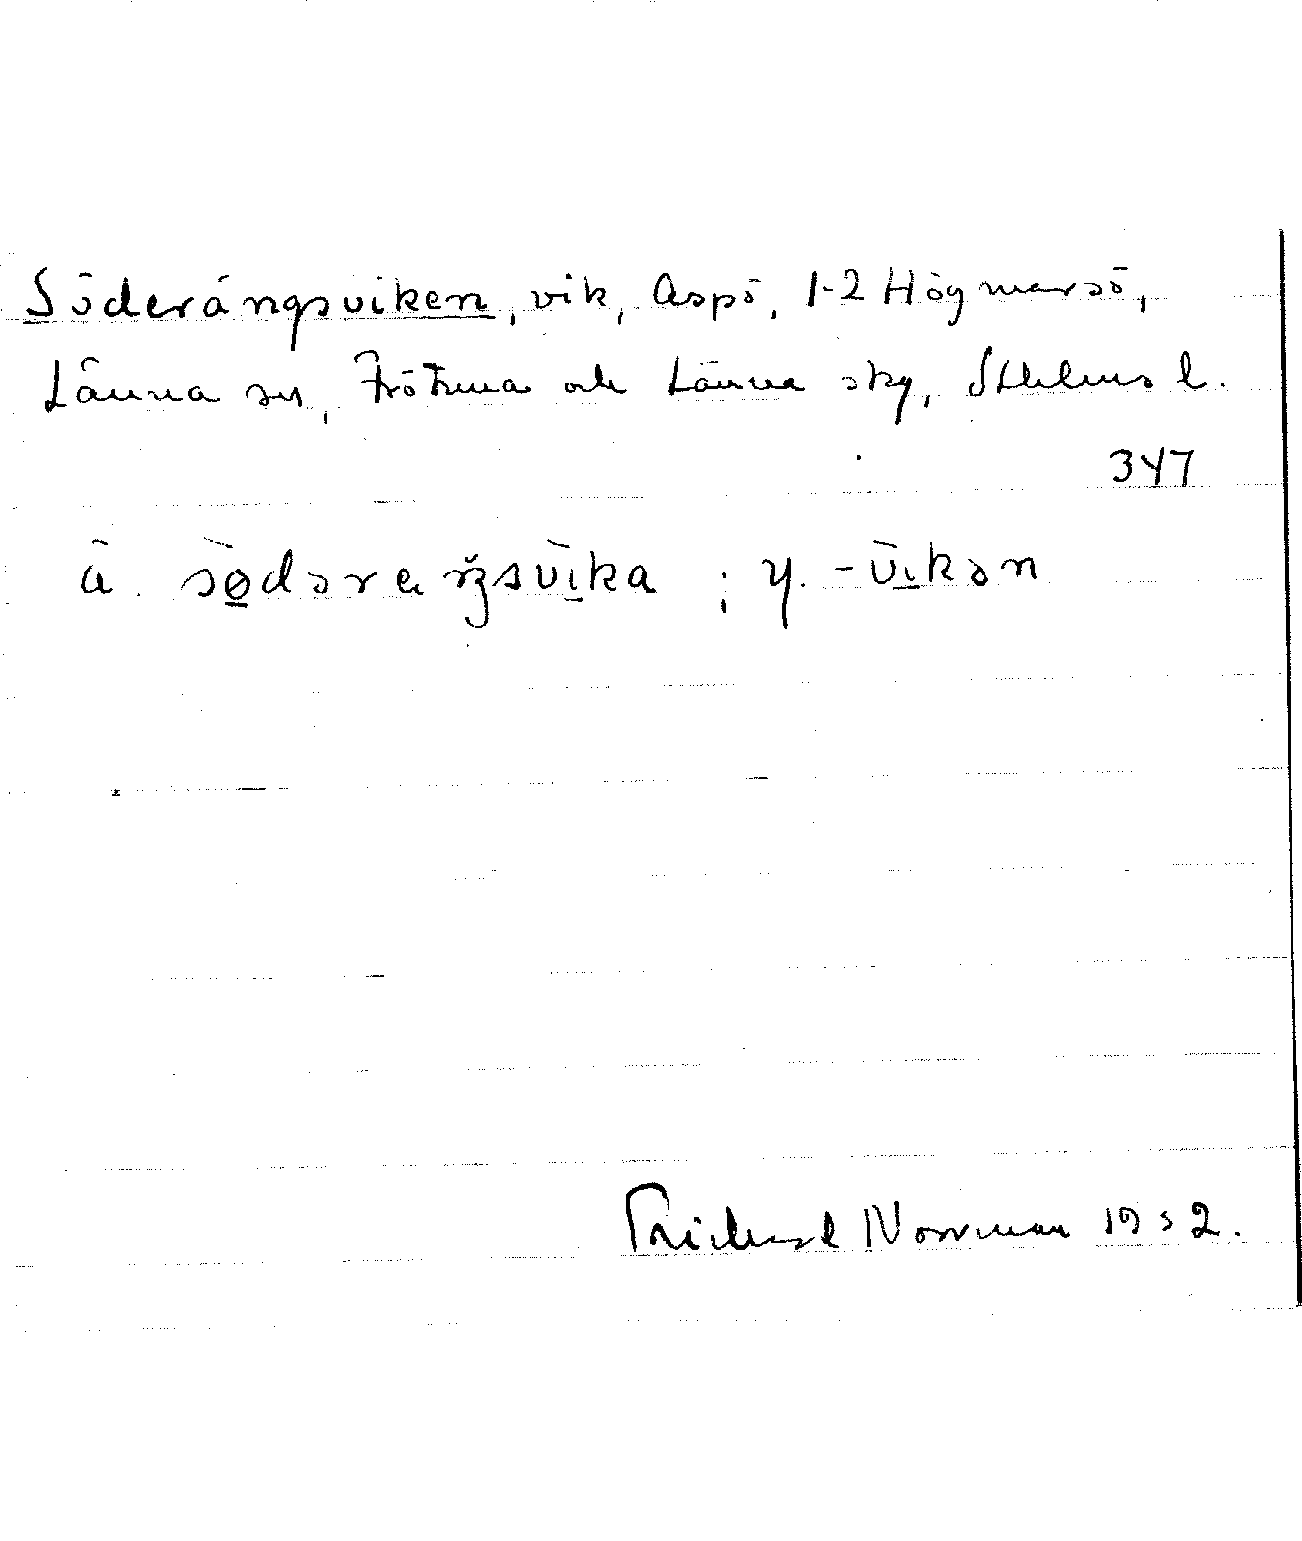 Söderängsviken, vik, Aspö, 1-2 Högmarsö,
Länna sn, Frötuna och Länna sky, Sthlms l.
347
ä. sødəraŋsvika ; y. -vikən
Norrman 1932.